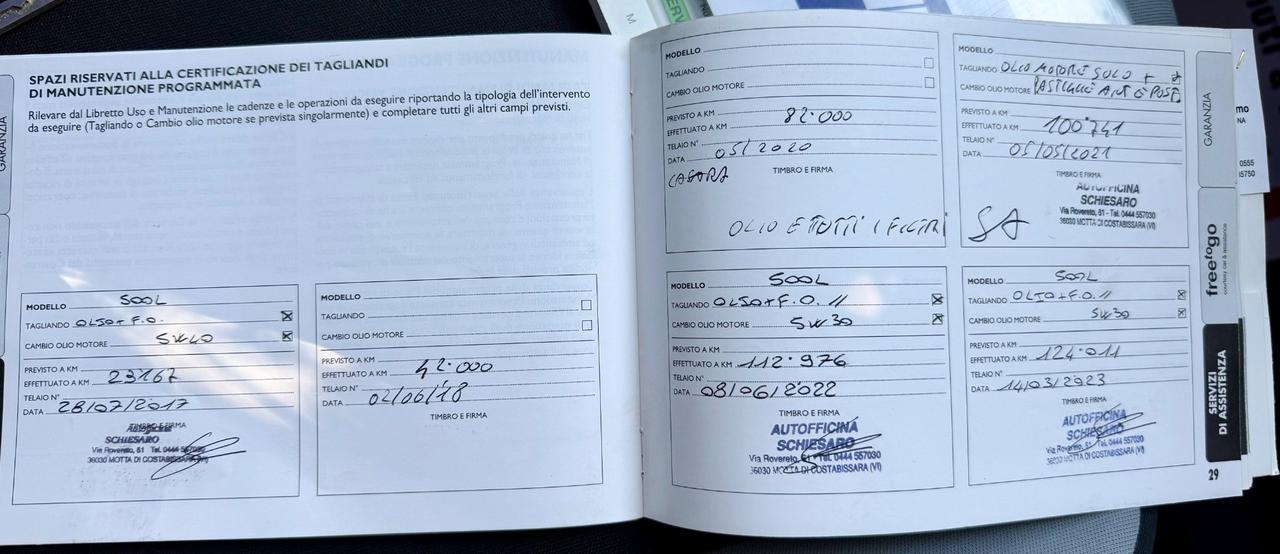 SPAZI RISERVATI ALLA CERTIFICAZIONE DEI TAGLIANDI
DI MANUTENZIONE PROGRAMMATA
Rilevare dal Libretto Uso e Manutenzione le cadenze e le operazioni da eseguire riportando la tipologia dell'intervento
da eseguire (Tagliando o Cambio olio motore se prevista singolarmente) e completare tutti gli altri campi previsti.
MODELLO 500L
TAGLIANDO OLIO + F.O.
CAMBIO OLIO MOTORE 5W40
PREVISTO A KM
EFFETTUATO A KM 23167
TELAIO N°
DATA 28/07/2017
TIMBRO E FIRMA
Autofficina
SCHIESARO
Via Rovereto, 61 Tel. 0444 557030
36030 MOTTA DI COSTABISSARA (VI)
MODELLO
TAGLIANDO
CAMBIO OLIO MOTORE
PREVISTO A KM
EFFETTUATO A KM 42.000
TELAIO N°
DATA 02/06/18
TIMBRO E FIRMA
MODELLO
TAGLIANDO
CAMBIO OLIO MOTORE
PREVISTO A KM
EFFETTUATO A KM 82.000
TELAIO N°
DATA 05/2020
TIMBRO E FIRMA
OLIO E TUTTI I FILTRI
MODELLO
TAGLIANDO OLIO MOTORE SOLO +
CAMBIO OLIO MOTORE PASTIGLIE ANT E POST
PREVISTO A KM
EFFETTUATO A KM 100.741
TELAIO N°
DATA 05/05/2021
TIMBRO E FIRMA
AUTOFFICINA
SCHIESARO
Via Rovereto, 61 - Tel. 0444 557030
36030 MOTTA DI COSTABISSARA (VI)
SA
MODELLO 500L
TAGLIANDO OLIO+F.O. //
CAMBIO OLIO MOTORE 5W30
PREVISTO A KM
EFFETTUATO A KM 112.976
TELAIO N°
DATA 08/06/2022
TIMBRO E FIRMA
AUTOFFICINA
SCHIESARO
Via Rovereto, 61 - Tel. 0444 557030
36030 MOTTA DI COSTABISSARA (VI)
MODELLO 500L
TAGLIANDO OLIO+F.O. //
CAMBIO OLIO MOTORE 5W30
PREVISTO A KM
EFFETTUATO A KM 124.011
TELAIO N°
DATA 14/03/2023
TIMBRO E FIRMA
AUTOFFICINA
SCHIESARO
Via Rovereto, 61 Tel. 0444 557030
36030 MOTTA DI COSTABISSARA (VI)
GARANZIA
GARANZIA
freetogo
courtesy car & assistance
SERVIZI
DI ASSISTENZA
29
mo
NA
0555
5750